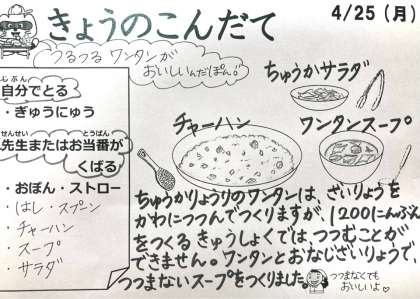 きょうのこんだて
4/25（月）
つるつる ワンタンが
おいしいんだぽん!
じぶん
自分でとる
・ぎゅうにゅう
せんせい とうばん
先生またはお当番が
くばる
・おぼん・ストロー
・はし・スプーン
・チャーハン
・スープ
・サラダ
ちゅうかサラダ
チャーハン
ワンタンスープ
ちゅうかりょうりのワンタンは、ざいりょうを
かわにつつんでつくりますが、1200にんぶん
をつくる きゅうしょくでは、つつむことが
できません。ワンタンとおなじざいりょうで、
つつまないスープをつくりました
つつまなくても
おいしいよ